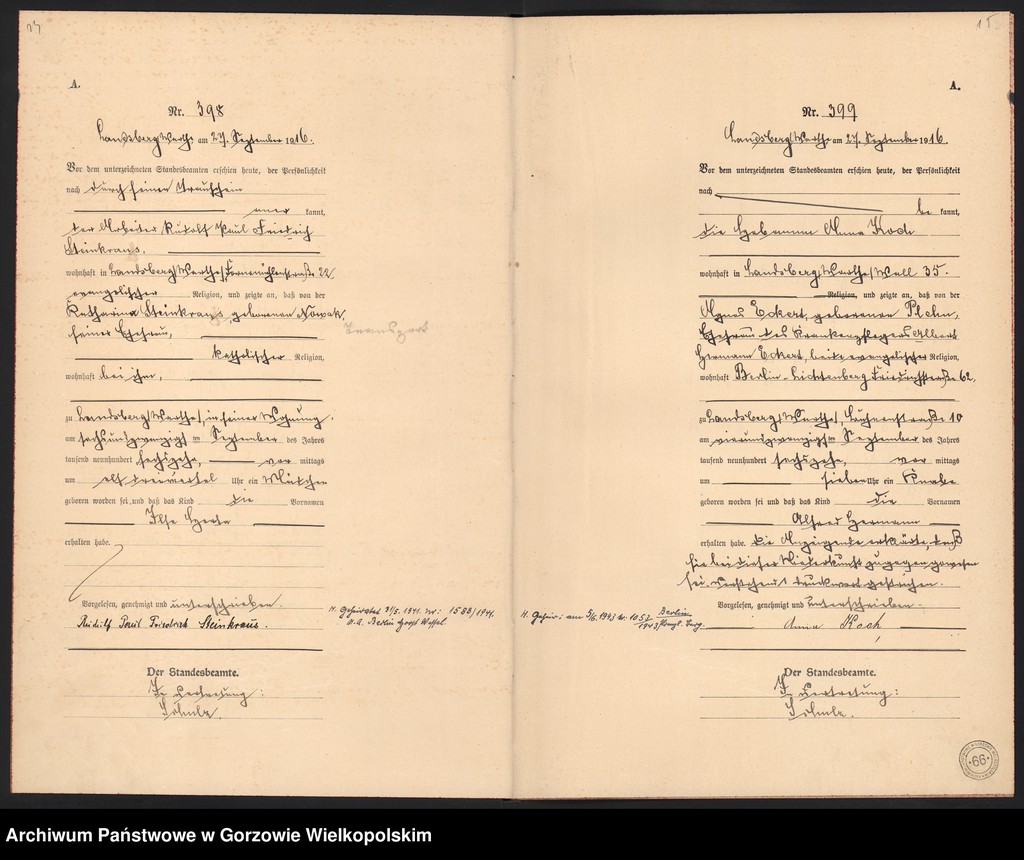 A.
Nr. 398
Landsberg Warthe am 27. September 1916.
Vor dem unterzeichneten Standesbeamten erschien heute, der Persönlichkeit
nach durch seinen Trauschein
aner kannt,
der Arbeiter Rudolf Paul Friedrich
Steinkraus,
wohnhaft in Landsberg/Warthe/, 22,
evangelischer Religion, und zeigte an, daß von der
Katharina Steinkraus, geborenen Nowak,
seiner Ehefrau,
katholischer Religion,
wohnhaft bei ihm,
zu Landsberg/Warthe/, in seiner Wohnung,
am sechsundzwanzigsten September des Jahres
tausend neunhundert sechszehn, vor mittags
um elf dreiviertel Uhr ein Mädchen
geboren worden sei, und daß das Kind die Vornamen
Ilse Herta
erhalten habe.
Vorgelesen, genehmigt und unterschrieben.
Rudolf Paul Friedrich Steinkraus.
Der Standesbeamte.
In Vertretung:
H. Geheiratet 31/5. 1941. Nr: 1588/1941.
St. A. Berlin Horst Wessel
15
A.
Nr. 399
Landsberg Warthe am 27. September 1916.
Vor dem unterzeichneten Standesbeamten erschien heute, der Persönlichkeit
nach
be kannt,
die Hebamme Anna Koch
wohnhaft in Landsberg/Warthe/ Wall 35.
Religion, und zeigte an, daß von der
Agnes Eckert, geborenen Plehn,
Ehefrau des Krankenpflegers Albert
Hermann Eckert, beide evangelischer Religion,
wohnhaft Berlin-Lichtenberg Friedrichstraße 62,
zu Landsberg/Warthe/, straße 10
am vierundzwanzigsten September des Jahres
tausend neunhundert sechszehn, vor mittags
um sieben Uhr ein Knabe
geboren worden sei und daß das Kind die Vornamen
Alfred Hermann
erhalten habe. Die Anzeigende erklärte, daß
sie bei dieser Niederkunft zugegen gewesen
sei. Vorstehend 1 Druckwort gestrichen.
Vorgelesen, genehmigt und unterschrieben.
Anna Koch
Der Standesbeamte.
In Vertretung:
H. Geheir: am 5/6. 1943 Nr. 1052/1943 Berlin
66
Archiwum Państwowe w Gorzowie Wielkopolskim